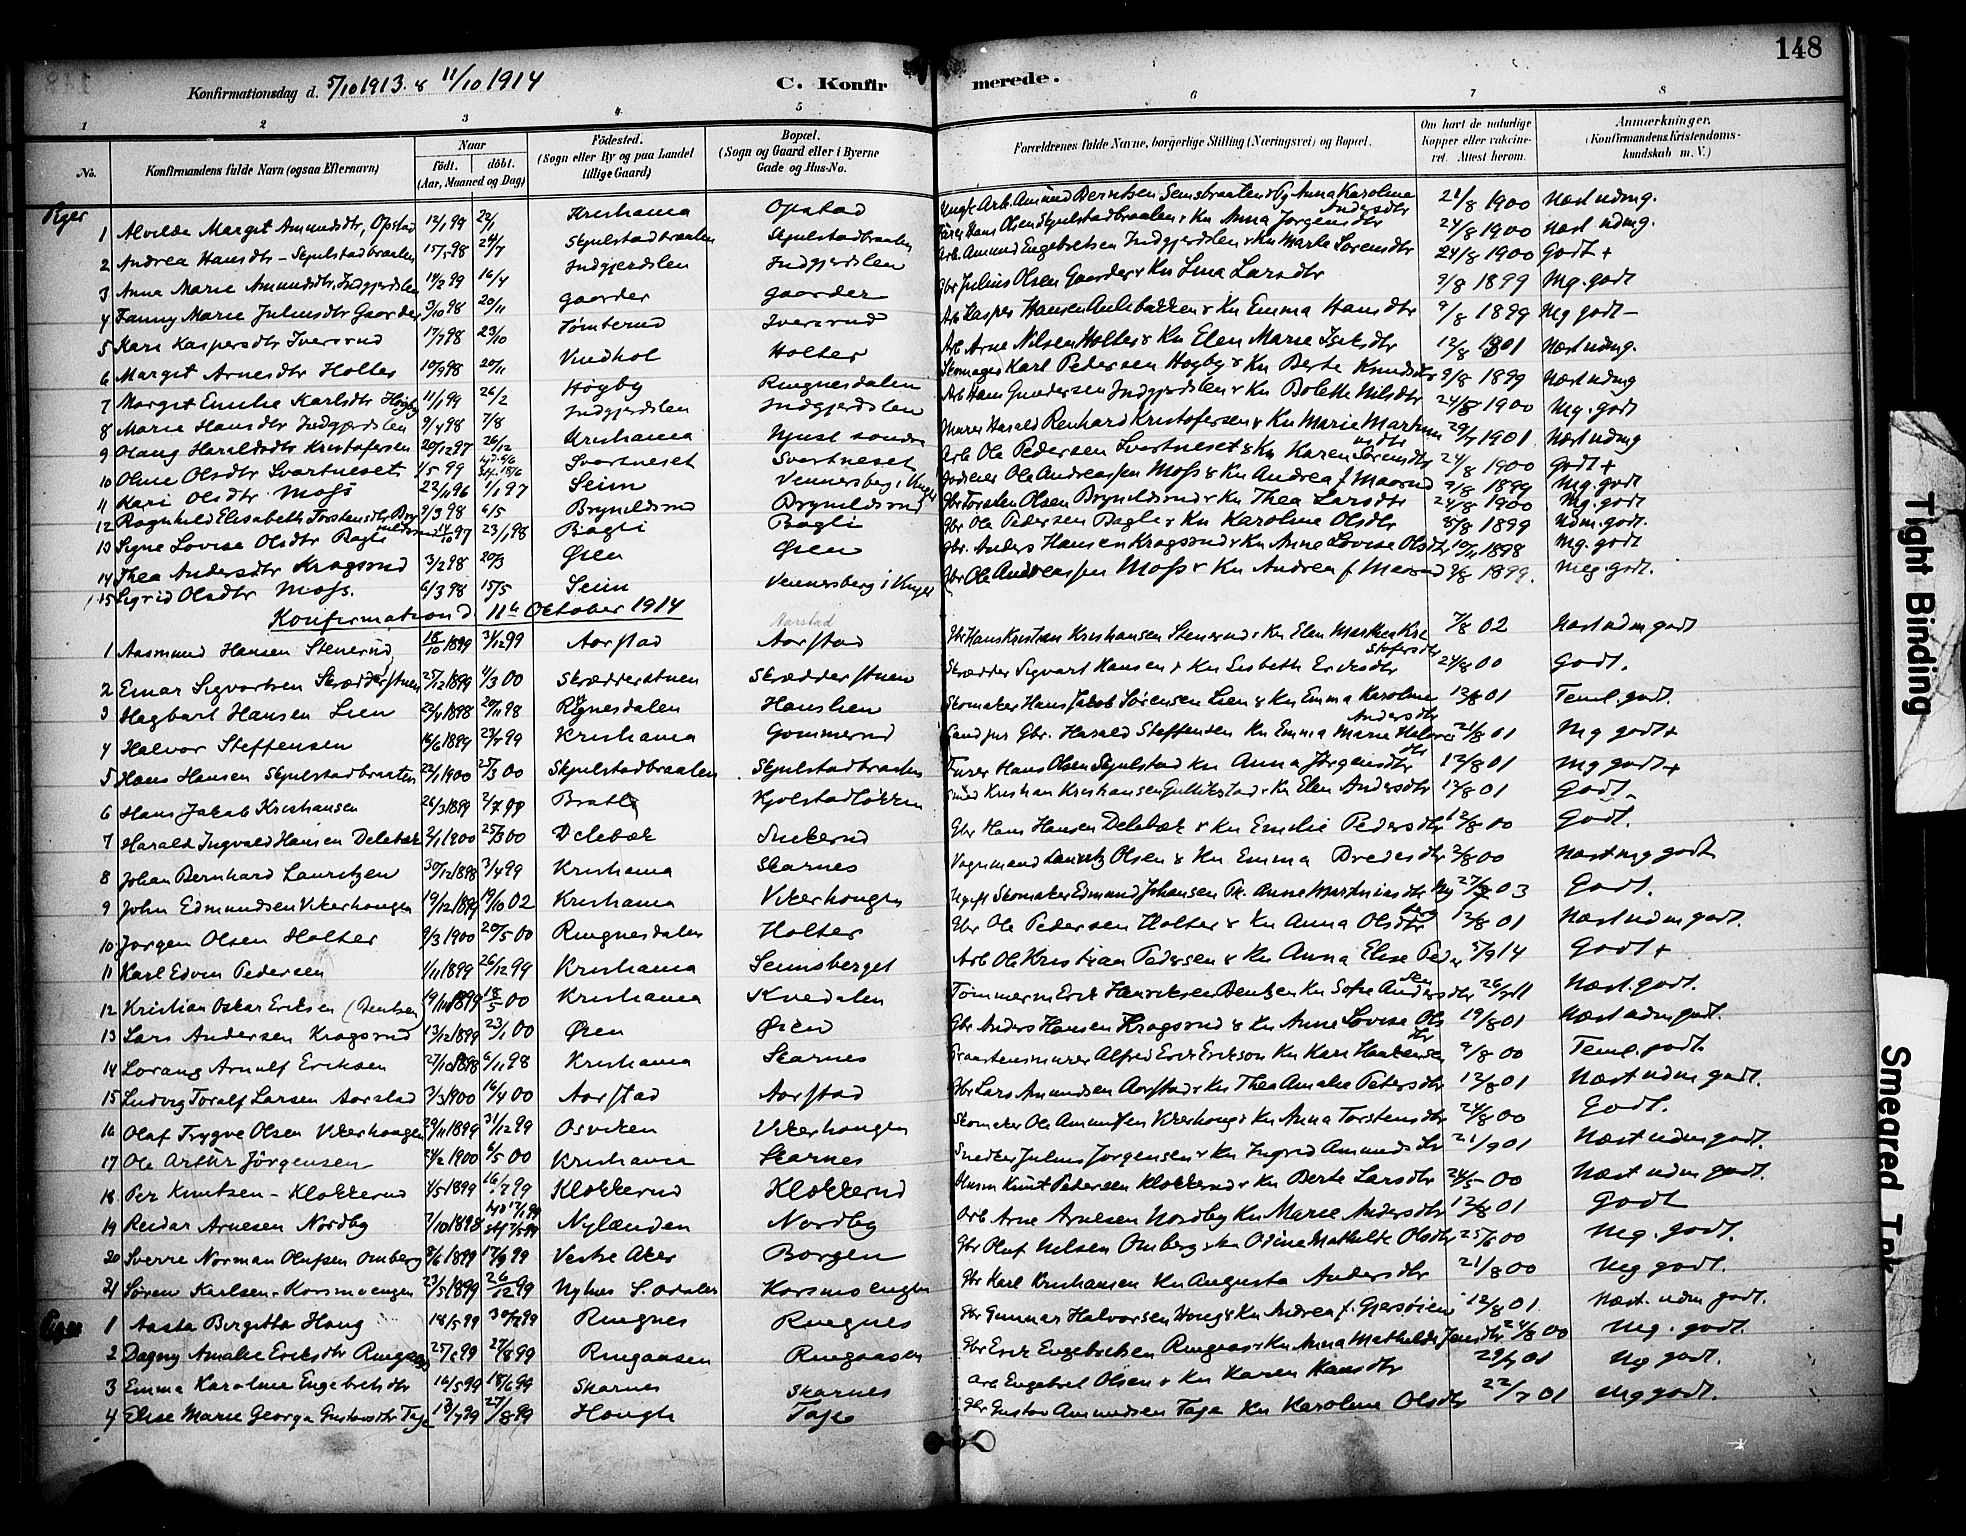 148
Konfirmationsdag d. 5/10 1913 & 11/10 1914 C. Konfirmerede.
1 2 3 4 5 6 7 8
No. Konfirmandens fulde Navn (ogsaa Efternavn) Naar født. døbt. (Aar, Maaned og Dag) Fødested. (Sogn eller By og paa Landet tillige Gaard) Bopæl. (Sogn og Gaard eller i Byerne Gade og Hus-No. Forældrenes fulde Navne, borgerlige Stilling (Næringsvei) og Bopæl. Om havt de naturlige Kopper eller vaccineret. Attest herom. Anmærkninger. (Konfirmandens Kristendomskundskab m. V.)
Piger
1 Alvilde Margit Amundsdtr, Opstad 12/1 99 22/1 Kristiania Opstad 21/8 1900 Næst udmg.
2 Andrea Hansdtr - Skjulstadbraaten 15/5 98 24/7 Skjulstadbraaten Skjulstadbraaten Hans Olsen Skjulstadbraaten & Kn Anna Jørgensdtr 24/8 1900 Næst udmg.
3 Anna Marie Amundsdtr, Indgjerdslen 14/2 99 16/4 Indgjerdslen Indgjerdslen Arb. Amund Engebretsen Indgjerdslen & Kn Marte Sørensdtr 24/8 1900 Godt +
4 Fanny Marie Juliusdtr Gaarder 3/10 98 20/11 Gaarder Gaarder Gbr Julius Olsen Gaarder & Kn Lina Larsdtr 9/8 1899 Mg. godt
5 Kari Kaspersdtr Iversrud 17/7 98 23/10 Tømterud Iversrud Arb Kasper Hansen & Kn Emma Hansdtr 9/8 1899 Mg godt -
6 Margit Arnesdtr Holter 10/9 98 20/11 Vindhol Holter Arb Arne Nilsen Holter & Kn Elen Marie 12/8 1901 Næst udmg.
7 Margit Emilie Karlsdtr Høgby 11/1 99 26/2 Høgby Ringnesdalen Skomager Karl Pedersen Høgby & Kn Berte Knudsdtr 9/8 1899 Næst udmg
8 Marie Hansdtr Indgjerdslen 9/4 98 7/8 Indgjerdslen Indgjerdslen Arb Hans Gundersen Indgjerdslen & Kn Bolette Nilsdtr 24/8 1900 Mg. godt
9 Olaug Haraldsdtr Kristofersen 20/12 97 26/12 Kristiania Murer Harald Renhard Kristofersen & Kn Marie 29/7 1901 Næst udmg
10 Oline Olsdtr Svartneset 1/5 99 Svartneset Svartneset Arb Ole Pedersen Svartneset & Kn Karen Sørensdtr 24/8 1900 Godt +
11 Kari Olsdtr Moss 22/11 96 1/1 97 Seim Vennersberg i Vinger Ole Andreassen Moss & Kn Andrea f. Maarud 9/8 1899 Mg. godt
12 Ragnhild Elisabeth Torstensdtr Bryneldsrud 9/3 98 6/5 Bryneldsrud Bryneldsrud Gbr Torsten Olsen Bryneldsrud & Kn Thea Larsdtr 24/8 1900 Mg. godt
13 Signe Lovise Olsdtr Bagli 97 23/1 98 Bagli Bagli Gbr Ole Pedersen Bagli & Kn Karoline Olsdtr 25/8 1899 Udm. godt.
14 Thea Andersdtr Kragsrud 3/2 98 20/3 Øien Øien Gbr. Anders Hansen Kragsrud & Kn Anne Lovise Olsdtr 1898 Mg. godt
15 Sigrid Olsdtr Moss. 6/3 98 15/5 Seim Vennersberg i Vinger Gbr Ole Andreassen Moss & Kn Andrea f. Maarud 9/8 1899. Meg. godt.
Konfirmation d. 11te October 1914
1 Aasmund Hansen Stenerud 18/10 1899 31/12 99 Aorstad Aarstad Aorstad Gbr Hans Kristian Kristiansen Stenerud & Kn Elen Marthea Kristofersdtr 7/8 02 Næst udm godt
2 Einar Sigvartsen Skrædderstuen 25/12 1899 4/3 00 Skrædderstuen Skrædderstuen Skrædder Sigvart Hansen & Kn Lisbeth Eriksdtr 24/8 00 Godt.
3 Hagbart Hansen Lien 23/9 1898 20/11 98 Ringnesdalen Hanslien Skomaker Hans Jakob Sørensen Lien & Kn Emma Karoline Andersdtr 13/8 01 Teml. godt.
4 Halvor Steffensen 16/6 1899 23/7 99 Kristiania Gommerud Cand jur Gbr. Harald Steffensen Kn Emma Marie 21/8 01 Mg godt +
5 Hans Hansen Skjulstadbraaten 22/1 1900 25/3 00 Skjulstadbraaten Skjulstadbraaten Hans Olsen Skjulstad Kn Anna Jørgensdtr 12/8 01 Mg godt +
6 Hans Jakob Kristiansen 26/3 1899 2/7 99 Bratli Kjolstadløkken Kristian Kristiansen & Kn Elen Andersdtr 12/8 01 Godt
7 Harald Ingvald Hansen Delebæk 2/1 1900 25/3 00 Delebæk Snekerud Gbr Hans Hansen Delebæk & Kn Emilie Pedersdtr 12/8 00 Godt.
8 Johan Bernhard Lauritzen 30/12 1898 3/4 99 Kristiania Skarnes Vognmand Lauritz Olsen & Kn Emma Bredesdtr 2/8 00 Næst mg godt
9 John Edmundsen Vikerhougen 19/12 1899 19/10 02 Kristiania Vikerhougen Ugift Skomaker Edmund Johansen Pk. Anne Martniusdtr 03 Godt.
10 Jørgen Olsen Holter 9/3 1900 20/5 00 Ringnesdalen Holter Gbr Ole Pedersen Holter & Kn Anna Olsdtr 12/8 01 Næst udm godt.
11 Karl Edvin Pedersen 1/11 1899 26/12 99 Kristiania Seimsberget Arb Ole Kristian Pedersen & Kn Anna Elise Pedersen 5/9 14 Godt +
12 Kristian Oskar Eriksen (Bentsen) 19/11 1899 18/5 00 Kristiania Knedalen Tømmerm Erik Henriksen Bentsen Kn Sofie Andersdtr 26/2 11 Næst. godt.
13 Lars Andersen Kragsrud 13/12 1899 23/1 00 Øien Øien Gbr Anders Hansen Kragsrud & Kn Anne Lovise Olsdtr 19/8 01 Næst udm godt.
14 Lorang Arnulf Eriksen 27/10 1898 6/11 98 Kristiania Skarnes Graastensmurer Alfred Erik Erikson Kn Kari Haakensen 9/8 00 Teml. godt.
15 Ludvig Toralf Larsen Aarstad 3/3 1900 16/4 00 Aorstad Aorstad Gbr Lars Amundsen Aorstad & Kn Thea Amalie Petersdtr 12/8 01 Næst udm godt.
16 Olaf Trygve Olsen Vikerhougen 29/11 1899 31/12 99 Osviken Vikerhougen Skomaker Ole Amundsen Vikerhoug & Kn Anna Torstensdtr 24/8 00 Godt.
17 Ole Artür Jörgensen 24/2 1900 6/5 00 Kristiania Skarnes Snedker Julius Jørgensen & Kn Ingrid Amundsdtr 21/9 01 Næst udm godt.
18 Per Knutsen - Klokkerud 4/5 1899 16/7 99 Klokkerud Klokkerud Husm Knut Petersen Klokkerud & Kn Berte Larsdtr 24/5 00 Næst udm godt.
19 Reidar Arnesen Nordby 7/10 1898 Nylænden Nordby Arb Arne Arnesen Nordby Kn Marie Andersdtr 12/8 01 Godt
20 Sverre Norman Olufsen Omberg 8/6 1899 17/9 99 Vestre Aker Borgen Gbr Oluf Nilsen Omberg & Kn Odine Mathilde Olsdtr 25/6 00 Meg. godt.
21 Søren Karlsen - Korsmoengen 23/5 1899 26/12 99 Nylnes S. Odalen Korsmoengen Gbr Karl Kristiansen Kn Augusta Andersdtr 21/8 00 Meg godt.
Piger
1 Aasta Birgitta Houg 18/5 99 30/7 99 Ringnes Ringnes Gbr Gunnar Halvorsen Houg & Kn Andrea f. Gjersøien 12/8 01 Næst. udm godt.
2 Dagny Amalie Eriksdtr Ringaas 25/6 99 27/8 99 Ringaasen Ringaasen Gbr Erik Engebretsen Ringaas & Kn Anna Mathilde Jensdtr 24/8 00 Meg. godt.
3 Emma Karoline Engebretsdtr 16/5 99 18/6 99 Skarnes Skarnes Arb Engebret Olsen & Kn Karen Hansdtr 29/7 01 Mg godt.
4 Elise Marie Georga Gustavsdtr Taje 13/7 99 27/8 99 Hough Taje Gbr Gustav Amundsen Taje Kn Karoline Olsdtr 22/7 01 Mg godt.
Tight Binding
Smeared